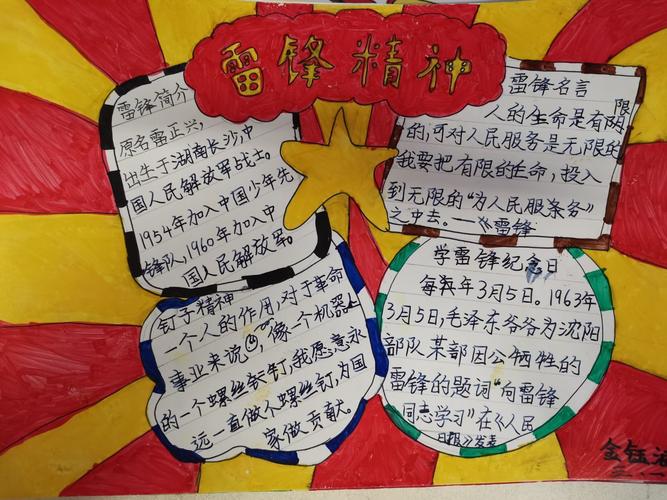 雷锋精神
雷锋简介
原名雷正兴,
出生于湖南长沙,中
国人民解放军战士。
1954年加入中国少年先
锋队,1960年加入中
国人民解放军。
雷锋名言
人的生命是有限
的,可对人民服务是无限的
我要把有限的生命,投入
到无限的“为人民服务》
之中去。——《雷锋
钉子精神
一个人的作用,对于革命
事业来说,像一个机器上
的一个螺丝钉,我愿意永
远一直做个螺丝钉,为国
家做贡献。
学雷锋纪念日
每年3月5日。1963年
3月5日,毛泽东爷爷为沈阳
部队某部因公牺牲的
雷锋的题词“向雷锋
同志学习”在《人民
日报》发表
金钰